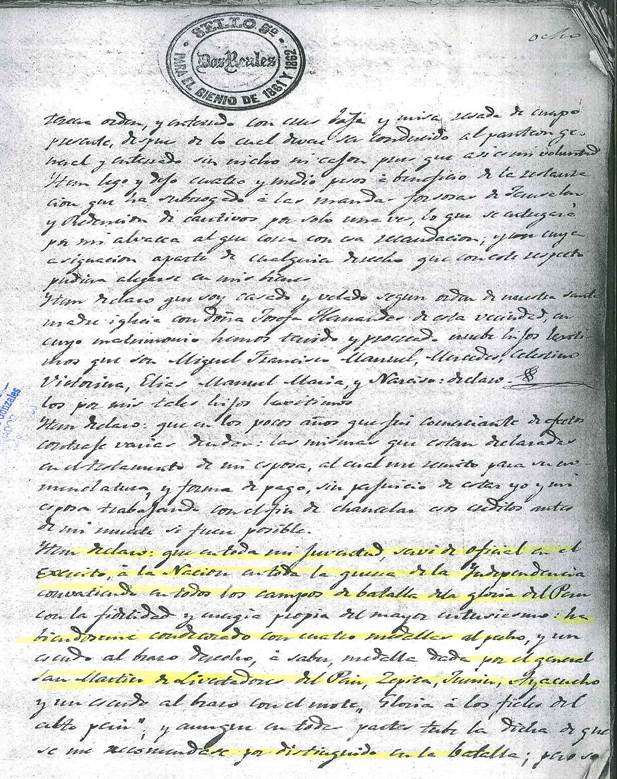 SELLO 3º
Dos Reales
PARA EL BIENIO DE 1861 Y 1862
ocho
orden, y enterrado con cruz baja y misa resada de cuerpo
presente, despues de lo cual devera ser conducido al panteon ge-
neral y enterrado sin nicho ni cajon pues que asi es mi voluntad
Ytem lego y dejo cuatro y medio pesos á beneficio de la
cion que ha subrogado á las mandas forsosas de Jerusalen
y Redencion de cautivos por solo una ves, lo que se entregará
por mi albacea al que corra con esa recaudacion; y con cuya
asignacion aparto de cualquiera derecho que con este respecto
pudiera alegarse en mis bienes
Ytem declaro que soy casado y velado segun orden de nuestra santa
madre iglesia con Doña Josefa Hernandes de esta vecindad, en
cuyo matrimonio hemos tenido y procreado nuebe hijos lexiti-
mos que son Miguel Francisco Manuel, Mercedes, Celestino
Victorina, Elias Manuel Maria, y Narciso: declaro
los por mis tales hijos lexitimos
Ytem declaro: que en los pocos años que fui comerciante de efectos
contraje varias deudas: las mismas que estan declaradas
en el testamento de mi esposa, al cual me remito para su no-
menclatura, y forma de pago, sin perjuicio de estar yo y mi
esposa trabajando con el fin de chancelar esos creditos antes
de mi muerte si fuere posible
Ytem declaro: que en toda mi juventud, serví de oficial en el
Exercito, á la Nacion en toda la guerra de la Independencia
convatiendo en todos los campos de batalla de la gloria del Perú
con la fidelidad y energia propia del mayor entusiasmo: ha
biendoseme condecorado con cuatro medallas al pecho, y un
escudo al braso derecho, á saber, medalla dada por el general
San Martin de Livertadores del Perú, Zepita, Junin, Ayacucho
y un escudo al braso con el mote, "Gloria á los fieles del
alto perú", y aunque en todas partes tube la dicha de que
se me recomendase por distinguido en la batalla; pero so